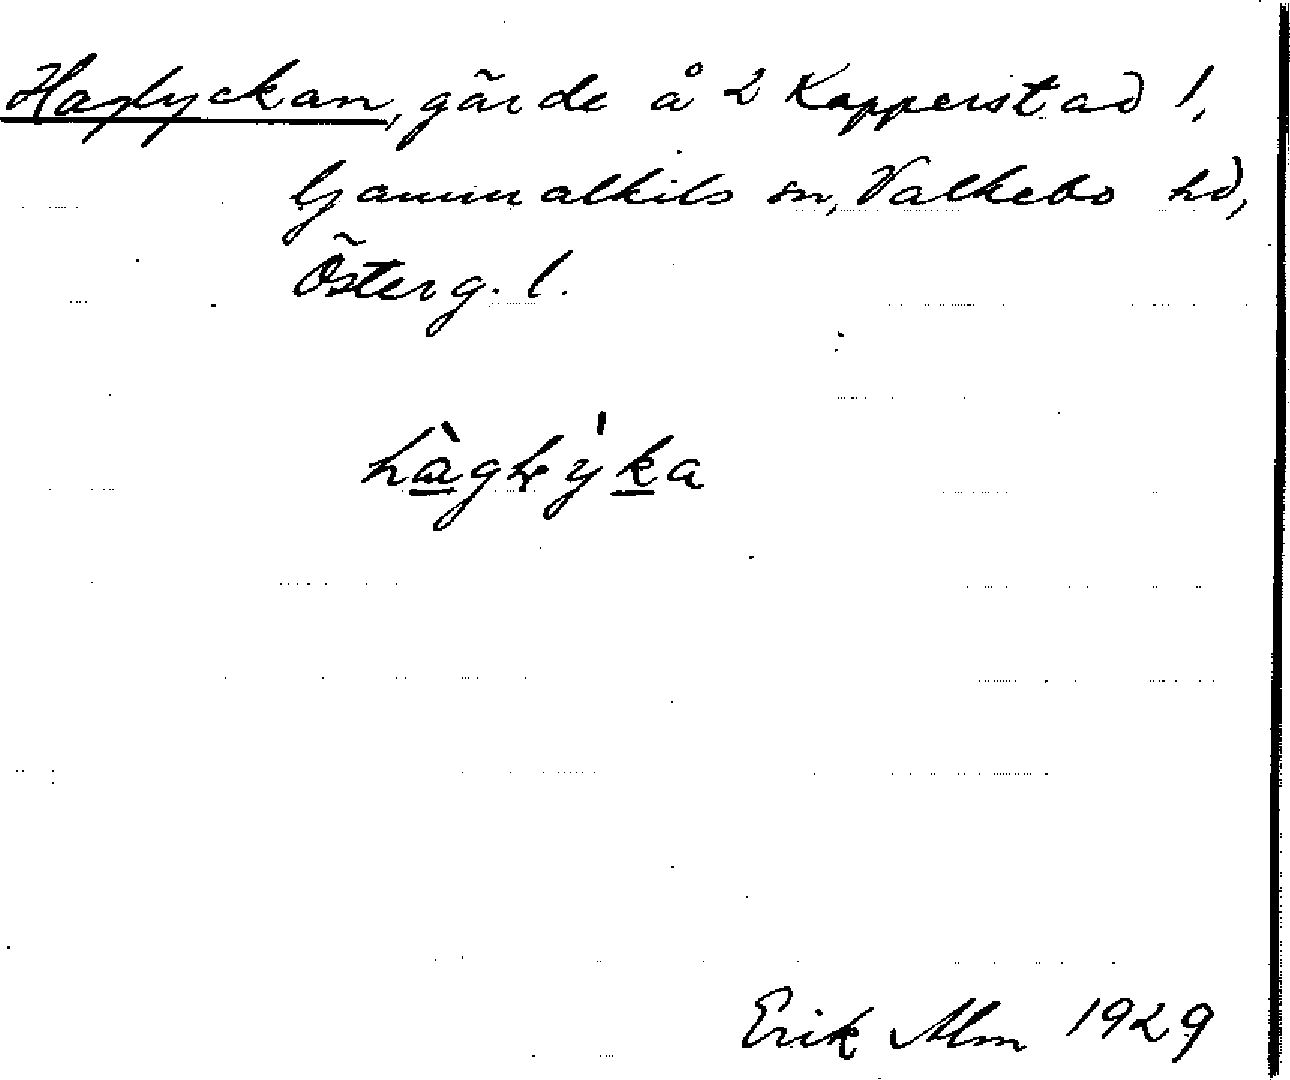 Haglyckan, gärde å 2 Kapperstad 1,
Gammalkils sn, Valkebo hd,
Österg. l.
hàglẏ́ka
Erik Alm 1929